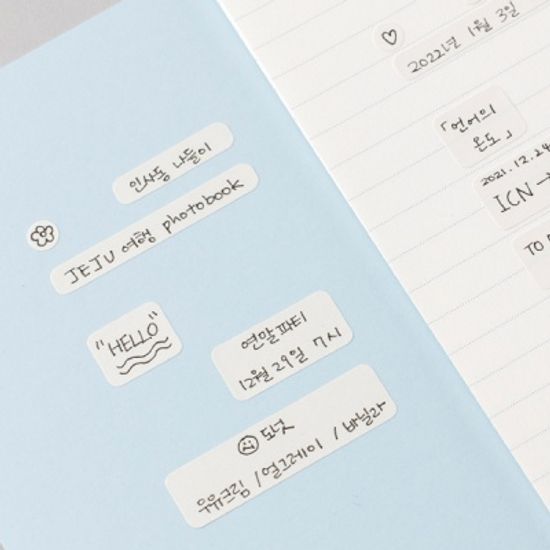 인사동 나들이
JEJU 여행 photobook
"HELLO"
연말파티
12월 29일 7시
도넛
우유크림 / 얼그레이 / 바닐라
2022년 1월 3일
「언어의
온도」
2021.12.24
ICN →
TO